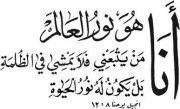 أَنَا هُوَ نُورُ الْعَالَمِ
مَنْ يَتْبَعْنِي فَلَا يَمْشِي فِي الظُّلْمَةِ
بَلْ يَكُونُ لَهُ نُورُ الْحَيٰوةِ
انجيل يوحنا ٨:١٢